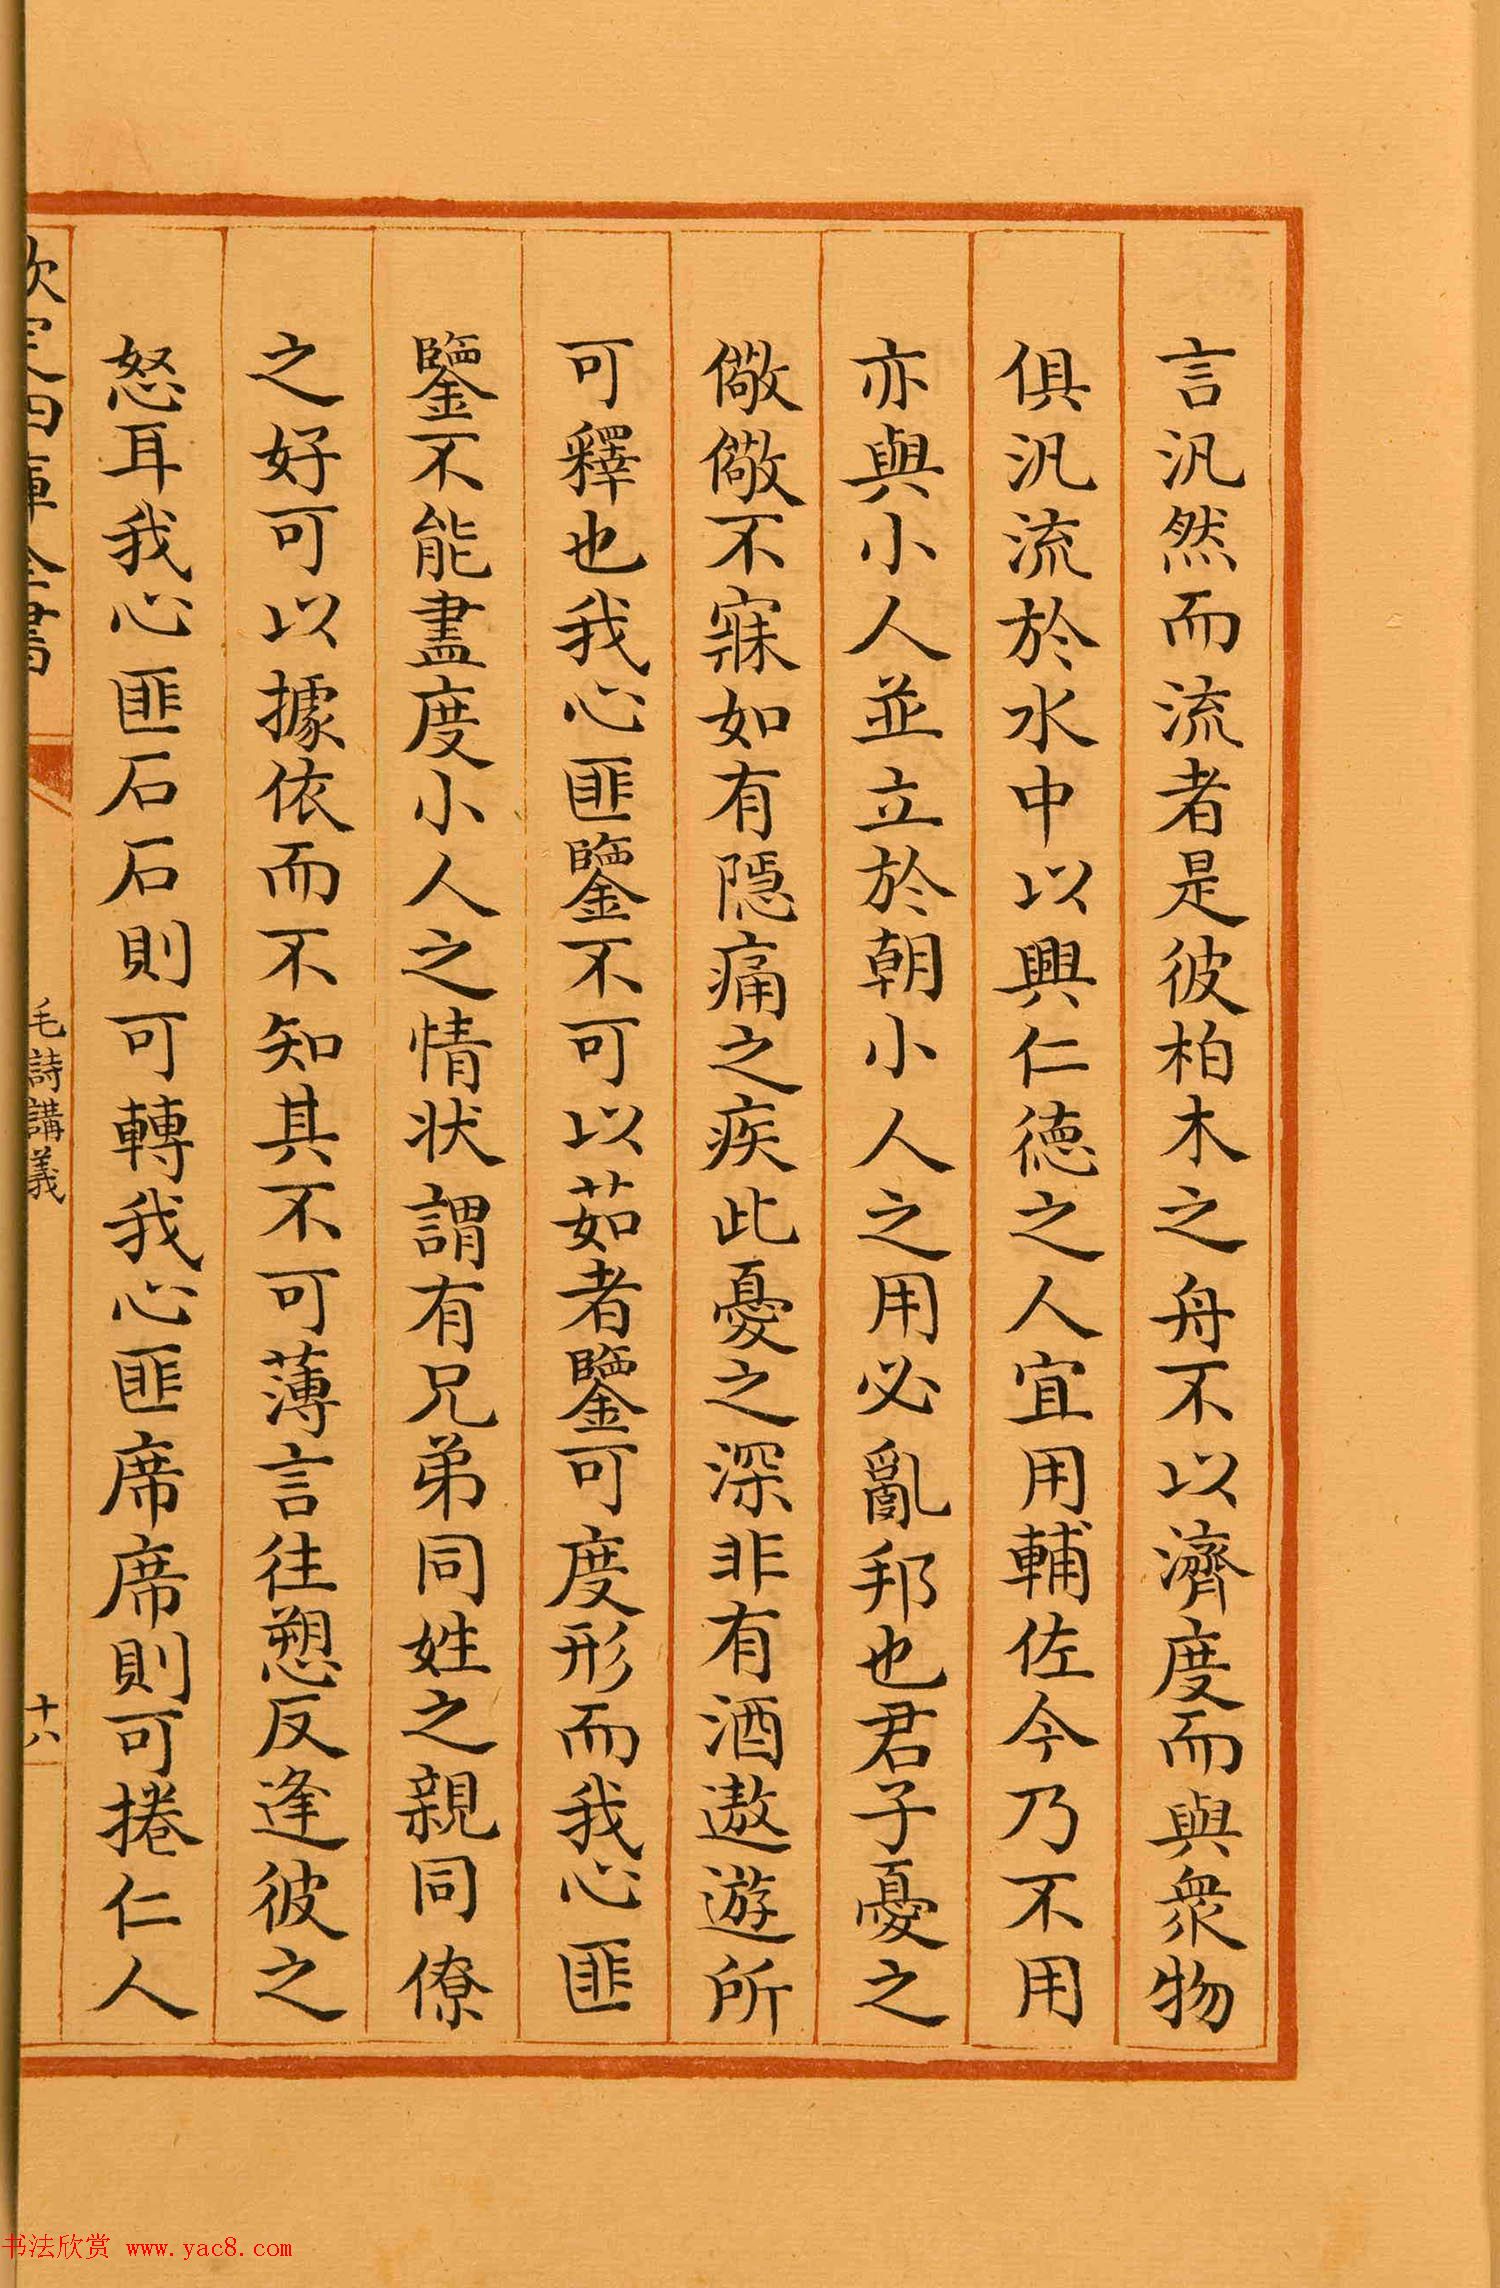 言汎然而流者是彼柏木之舟不以濟度而與衆物
俱汎流於水中以興仁德之人宜用輔佐今乃不用
亦與小人並立於朝小人之用必亂邦也君子憂之
儆儆不寐如有隱痛之疾此憂之深非有酒遨遊所
可釋也我心匪鑒不可以茹者鑒可度形而我心匪
鑒不能盡度小人之情状謂有兄弟同姓之親同僚
之好可以據依而不知其不可薄言往愬反逢彼之
怒耳我心匪石石則可轉我心匪席席則可捲仁人
欽定四庫全書
毛詩講義
十六
书法欣赏 www.yac8.com